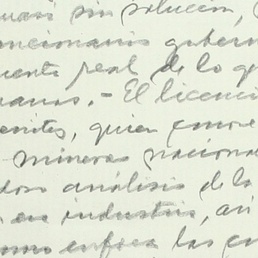 uasi sin solución,
ncionarios gubern
uente real de lo q
anas. - El licenci
enites, quien cono
mineros nacional
dos análisis de la
en industria, así
omo enfoca las cu